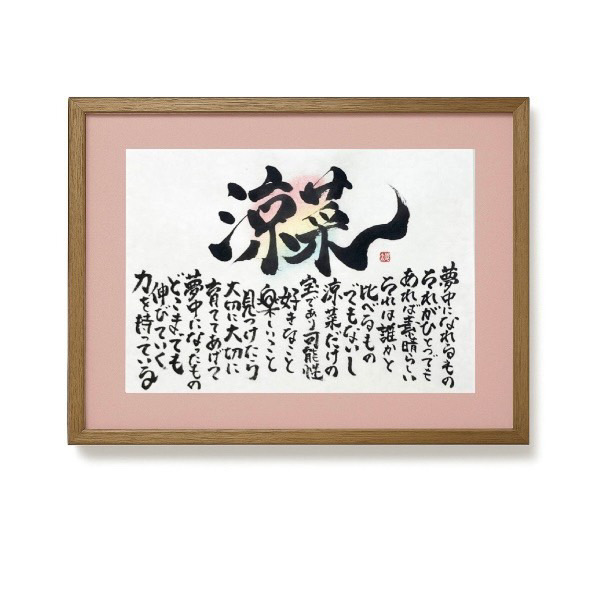 涼菜
夢中になれるもの
それがひとつでも
あれば素晴らしい
それは誰かと
比べるもの
でもないし
涼菜だけの
宝であり可能性
好きなこと
楽しいこと
見つけたら
大切に大切に
育ててあげて
夢中になったもの
どこまでも
伸びていく
力を持っている